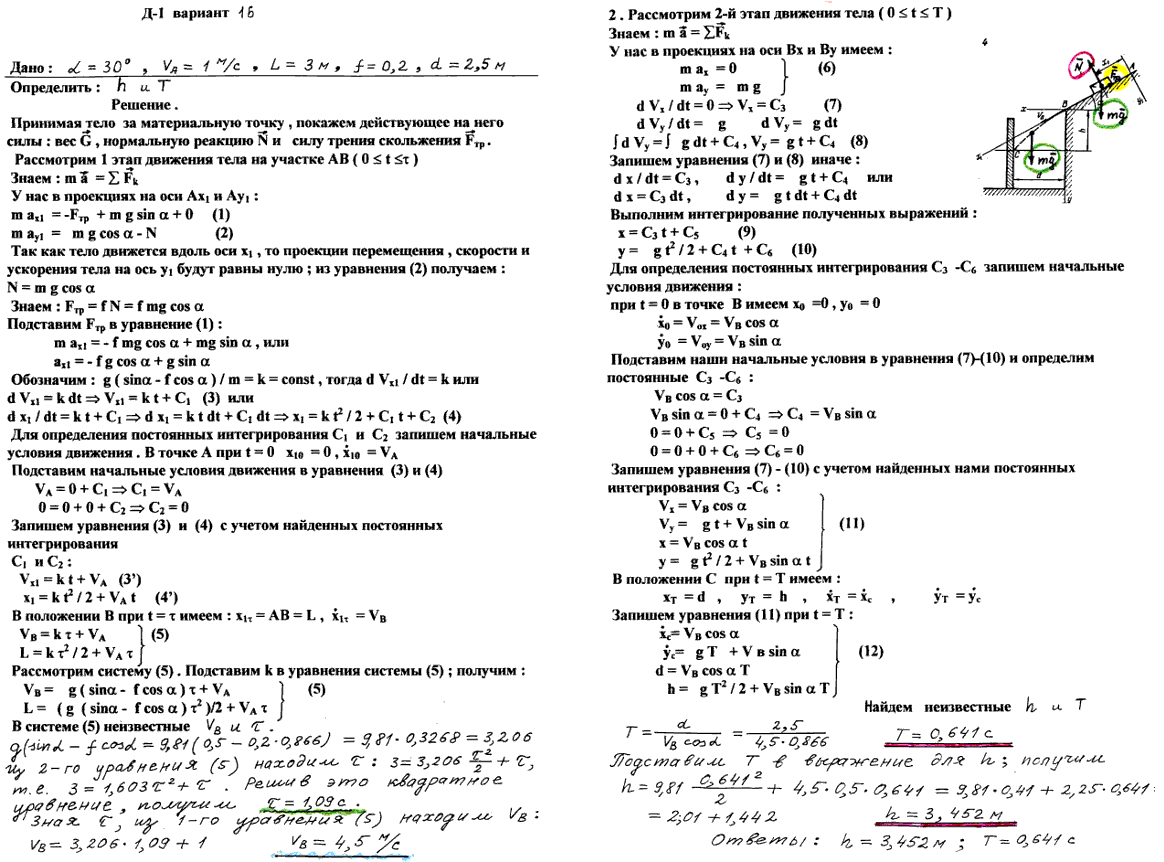 Д-1 вариант 16
Дано : α = 30° , V_A = 1 м/с , L = 3 м , f = 0,2 , d = 2,5 м
Определить : h и T
Решение .
Принимая тело за материальную точку , покажем действующее на него
силы : вес G⃗ , нормальную реакцию N⃗ и силу трения скольжения F⃗тр .
Рассмотрим 1 этап движения тела на участке АВ ( 0 ≤ t ≤τ )
Знаем : m a⃗ = ∑ F⃗k
У нас в проекциях на оси Ax₁ и Ay₁ :
m ax1 = -Fтр + m g sin α + 0 (1)
m ay1 = m g cos α - N (2)
Так как тело движется вдоль оси x₁ , то проекции перемещения , скорости и
ускорения тела на ось y₁ будут равны нулю ; из уравнения (2) получаем :
N = m g cos α
Знаем : Fтр = f N = f mg cos α
Подставим Fтр в уравнение (1) :
m ax1 = - f mg cos α + mg sin α , или
ax1 = - f g cos α + g sin α
Обозначим : g ( sinα - f cos α ) / m = k = const , тогда d Vx1 / dt = k или
d Vx1 = k dt ⇒ Vx1 = k t + C₁ (3) или
d x₁ / dt = k t + C₁ ⇒ d x₁ = k t dt + C₁ dt ⇒ x₁ = k t² / 2 + C₁ t + C₂ (4)
Для определения постоянных интегрирования C₁ и C₂ запишем начальные
условия движения . В точке А при t = 0 x₁₀ = 0 , ẋ₁₀ = V_A
Подставим начальные условия движения в уравнения (3) и (4)
V_A = 0 + C₁ ⇒ C₁ = V_A
0 = 0 + 0 + C₂ ⇒ C₂ = 0
Запишем уравнения (3) и (4) с учетом найденных постоянных
интегрирования
C₁ и C₂ :
Vx1 = k t + V_A (3’)
x₁ = k t² / 2 + V_A t (4’)
В положении В при t = τ имеем : x₁τ = AB = L , ẋ₁τ = V_B
V_B = k τ + V_A (5)
L = k τ² / 2 + V_A τ
Рассмотрим систему (5) . Подставим k в уравнения системы (5) ; получим :
V_B = g ( sinα - f cos α ) τ + V_A (5)
L = ( g ( sinα - f cos α ) τ² )/2 + V_A τ
В системе (5) неизвестные V_B и τ .
g(sinα – f cosα = 9,81(0,5 – 0,2·0,866) = 9,81·0,3268 = 3,206
Из 2-го уравнения (5) находим τ : 3 = 3,206 τ²/2 + τ,
т.е. 3 = 1,603τ² + τ . Решив это квадратное
уравнение, получим τ = 1,09 с.
Зная τ, из 1-го уравнения (5) находим V_B :
V_B = 3,206·1,09 + 1 V_B = 4,5 м/с
2 . Рассмотрим 2-й этап движения тела ( 0 ≤ t ≤ T )
Знаем : m a⃗ = ∑F⃗k
У нас в проекциях на оси Bx и By имеем :
m ax = 0 (6)
m ay = m g
d Vx / dt = 0 ⇒ Vx = C₃ (7)
d Vy / dt = g d Vy = g dt
∫ d Vy = ∫ g dt + C₄ , Vy = g t + C₄ (8)
Запишем уравнения (7) и (8) иначе :
d x / dt = C₃ , d y / dt = g t + C₄ или
d x = C₃ dt , d y = g t dt + C₄ dt
Выполним интегрирование полученных выражений :
x = C₃ t + C₅ (9)
y = g t² / 2 + C₄ t + C₆ (10)
Для определения постоянных интегрирования C₃ -C₆ запишем начальные
условия движения :
при t = 0 в точке В имеем x₀ =0 , y₀ = 0
ẋ₀ = Vox = V_B cos α
ẏ₀ = Voy = V_B sin α
Подставим наши начальные условия в уравнения (7)-(10) и определим
постоянные C₃ -C₆ :
V_B cos α = C₃
V_B sin α = 0 + C₄ ⇒ C₄ = V_B sin α
0 = 0 + C₅ ⇒ C₅ = 0
0 = 0 + 0 + C₆ ⇒ C₆ = 0
Запишем уравнения (7) - (10) с учетом найденных нами постоянных
интегрирования C₃ -C₆ :
Vx = V_B cos α
Vy = g t + V_B sin α (11)
x = V_B cos α t
y = g t² / 2 + V_B sin α t
В положении С при t = T имеем :
xT = d , yT = h , ẋT = ẋc , ẏT = ẏc
Запишем уравнения (11) при t = T :
ẋc= V_B cos α
ẏc= g T + V в sin α (12)
d = V_B cos α T
h = g T² / 2 + V_B sin α T
Найдем неизвестные h и T
T = d/(V_B cosα) = 2,5/(4,5·0,866) T = 0,641 с
Подставим T в выражение для h ; получим
h = 9,81 0,641²/2 + 4,5·0,5·0,641 = 9,81·0,41 + 2,25·0,641=
= 2,01 + 1,442 h = 3,452 м
Ответы : h = 3,452 м ; T = 0,641 с
4
N⃗
A
B
x
h
mg⃗
C
mg⃗
d
y